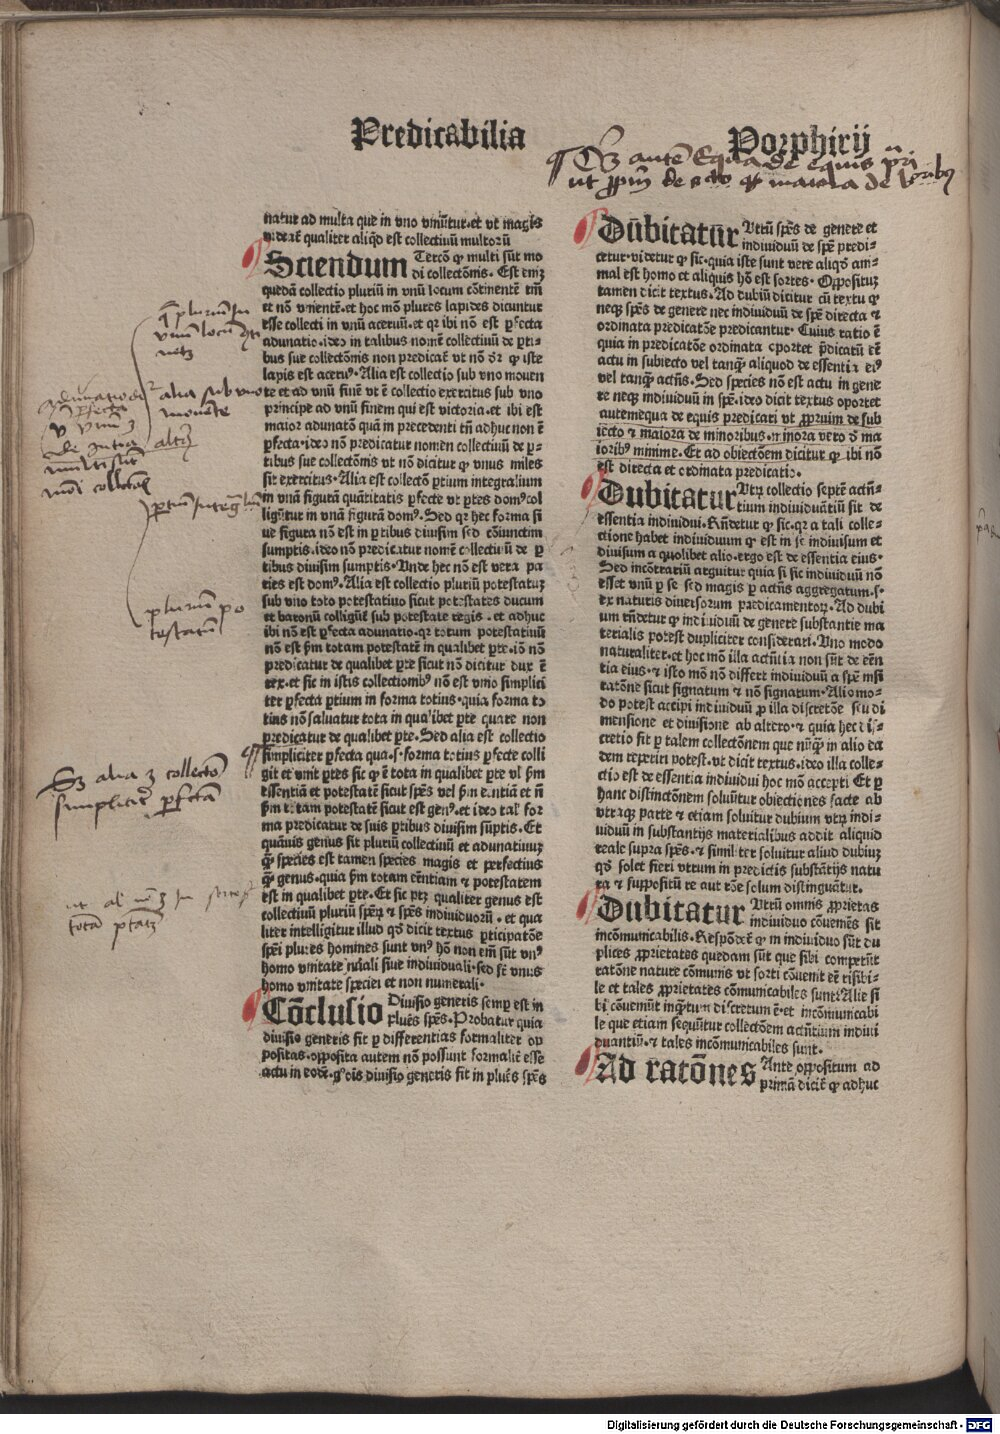 Predicabilia
Porphirij
natur ad multa que in vno vniūtur.et vt magis
videat̄ qualiter aliq̄d est collectiuū multorū
Sciendum Tercō ꝙ multi sūt mo
di collectōnis. Est eniꝫ
quedā collectio pluriū in vnū locum cōtinentē tm̄
et nō vnientē.et hoc mō plures lapides dicuntur
esse collecti in vnū aceruū.et qꝛ ibi nō est ꝑfecta
adunatio.ideo in talibus nomē collectiuū de ꝑti-
bus sue collectōnis non predicat̄ vt nō dr̄ ꝙ iste
lapis est aceruꝰ. Alia est collectio sub vno mouen
te et ad vnū finē vt ē collectio exercitus sub vno
principe ad vnū finem qui est victoria.et ibi est
maior adunatō quā in precedenti tn̄ adhuc non ē
ꝑfecta.ideo nō predicatur nomen collectiuū de ꝑ-
tibus sue collectōnis vt nō dicitur ꝙ vnus miles
sit exercitus. Alia est collectō ꝑtium integralium
in vnā figurā quātitatis ꝑfecte vt ꝑtes domꝰ col
ligūtur in vnā figurā domꝰ. Sed qꝛ hec forma si
ue figura nō est in ꝑtibus diuisim sed cōiunctim
sumptis.ideo nō predicatur nomē collectiuū de ꝑ
tibus diuisim sumptis. Vnde hec nō est vera pa
ries est domꝰ. Alia est collectio pluriū potestatuꝫ
sub vno toto potestatiuo sicut potestates ducum
et baronū colligūt̄ sub potestate regis. et adhuc
ibi nō est ꝑfecta adunatio.qꝛ totum potestatiuū
nō est ẜm totam potestatē in qualibet ꝑte.iō nō
predicatur de qualibet ꝑte sicut nō dicitur dux ē
rex.et sic in istis collectiombꝰ nō est vnio simplici
ter ꝑfecta ꝑtium in forma totius.quia forma to
tius nō saluatur tota in qualibet ꝑte quare non
predicatur de qualibet ꝑte. Sed alia est collectio
simpliciter ꝑfecta qua.s.forma totius ꝑfecte colli
git et vnit ꝑtes sic ꝙ ē tota in qualibet ꝑte vl ẜm
essentiā et potestatē sicut spēs vel ẜm eentiā et nō
ẜm totam potestatē sicut est genꝰ.et ideo tal̄ for
ma predicatur de suis ꝑtibus diuisim sūptis. Et
quāuis genus sit pluriū collectiuū et adunatiuuꝫ
ꝙ̄ species est tamen species magis et perfectius
ꝙ̄ genus.quia ẜm totam eēntiam ⁊ potestatem
est in qualibet ꝑte. Et sic ptꝫ qualiter genus est
collectiuū pluriū spērꝝ ⁊ spēs indiuiduorū. et qua
liter intelligitur illud qd̄ dicit textus ꝑticipatōe
spēi plures homines sunt vnꝰ hō non em̄ sūt vnꝰ
homo vnitate nūali siue indiuiduali.sed st̄ vnus
homo vnitate speciei et non numerali.
Cōclusio Diuisio generis semꝑ est in
plures spēs. Probatur quia
diuisio generis fit ꝑ differentias formaliter op
positas.opposita autem nō possunt formalit̄ esse
actu in eodē.gͦ oīs diuisio generis fit in plures spēs
Dūbitatur Vtrū spēs de genere et
indiuiduū de spē predi-
cetur.videtur ꝙ sic.quia iste sunt vere aliqd̄ ani-
mal est homo et aliquis hō est sortes. Oppositū
tamen dicit textus. Ad dubiū dicitur cū textu ꝙ
neqꝫ spēs de genere nec indiuiduū de spē directa ⁊
ordinata predicatōe predicantur. Cuius ratio ē
quia in predicatōe ordinata oportet p̄dicatū eē
actu in subiecto vel tanqꝫ aliquod de essentia eiꝰ
vel tanqꝫ actn̄s. Sed species nō est actu in gene
re neqꝫ indiuiduū in spē.ideo dicit textus oportet
autem equa de equis predicari vt ꝓprium de sub
iecto ⁊ maiora de minoribus.minora vero d̄ ma
ioribꝰ minime. Et ad obiectōem dicitur ꝙ ibi nō
est directa et ordinata predicatio.
Dubitatur Vtrꝫ collectio septē actn̄-
tium indiuiduātiū sit de
essentia indiuidui. Rn̄detur ꝙ sic.qꝛ a tali colle-
ctione habet indiuiduum ꝙ est in se indiuisum et
diuisum a quolibet alio.ergo est de essentia eius.
Sed incōtrariū arguitur quia si sic indiuiduū nō
esset vnū ꝑ se sed magis ꝑ actn̄s aggregatum.s.
ex naturis diuersorum predicamentoꝝ. Ad dubi
um rn̄detur ꝙ indiuiduū de genere substantie ma
terialis potest dupliciter considerari. Vno modo
naturaliter.et hoc mō illa actn̄tia non sūt de eēn
tia eius.⁊ isto mō nō differt indiuiduū a spē nisi
ratōne sicut signatum ⁊ nō signatum. Alio mo-
do potest accipi indiuiduū ꝓ illa discretōe seu di
mensione et diuisione ab altero.⁊ quia hec dis-
cretio fit ꝑ talem collectōnem que nūqꝫ in alio ea
dem reperiri potest.vt dicit textus.ideo illa colle-
ctio est de essentia indiuidui hoc mō accepti Et ꝑ
hanc distinctōnem soluūtur obiectiones facte ab
vtraqꝫ parte ⁊ etiam soluitur dubium vtrꝫ indi-
uiduū in substantijs materialibus addit aliquid
reale supra spēs.⁊ similiter soluitur aliud dubiuꝫ
qd̄ solet fieri vtrum in predictis substātijs natu
ra ⁊ suppositū re aut rōe solum distinguātur.
Dubitatur Vtrū omnis ꝓprietas
indiuiduo cōueniēs sit
incōmunicabilis. Respōdet̄ ꝙ in indiuiduo sūt du
plices ꝓprietates quedam sūt que sibi competūt
ratōne nature cōmunis vt sorti cōuenit eē risibi-
le et tales ꝓprietates cōmunicabiles sunt. Alie si
bi cōueniūt inqꝫtum discretum ē.et incōmunicabi
le que etiam sequūtur collectōem actn̄tium indiui
duantiū.⁊ tales incōmunicabiles sunt.
Ad ratōnes Ante oppositum ad
primā dicit̄ ꝙ adhuc
Digitalisierung gefördert durch die Deutsche Forschungsgemeinschaft - DFG